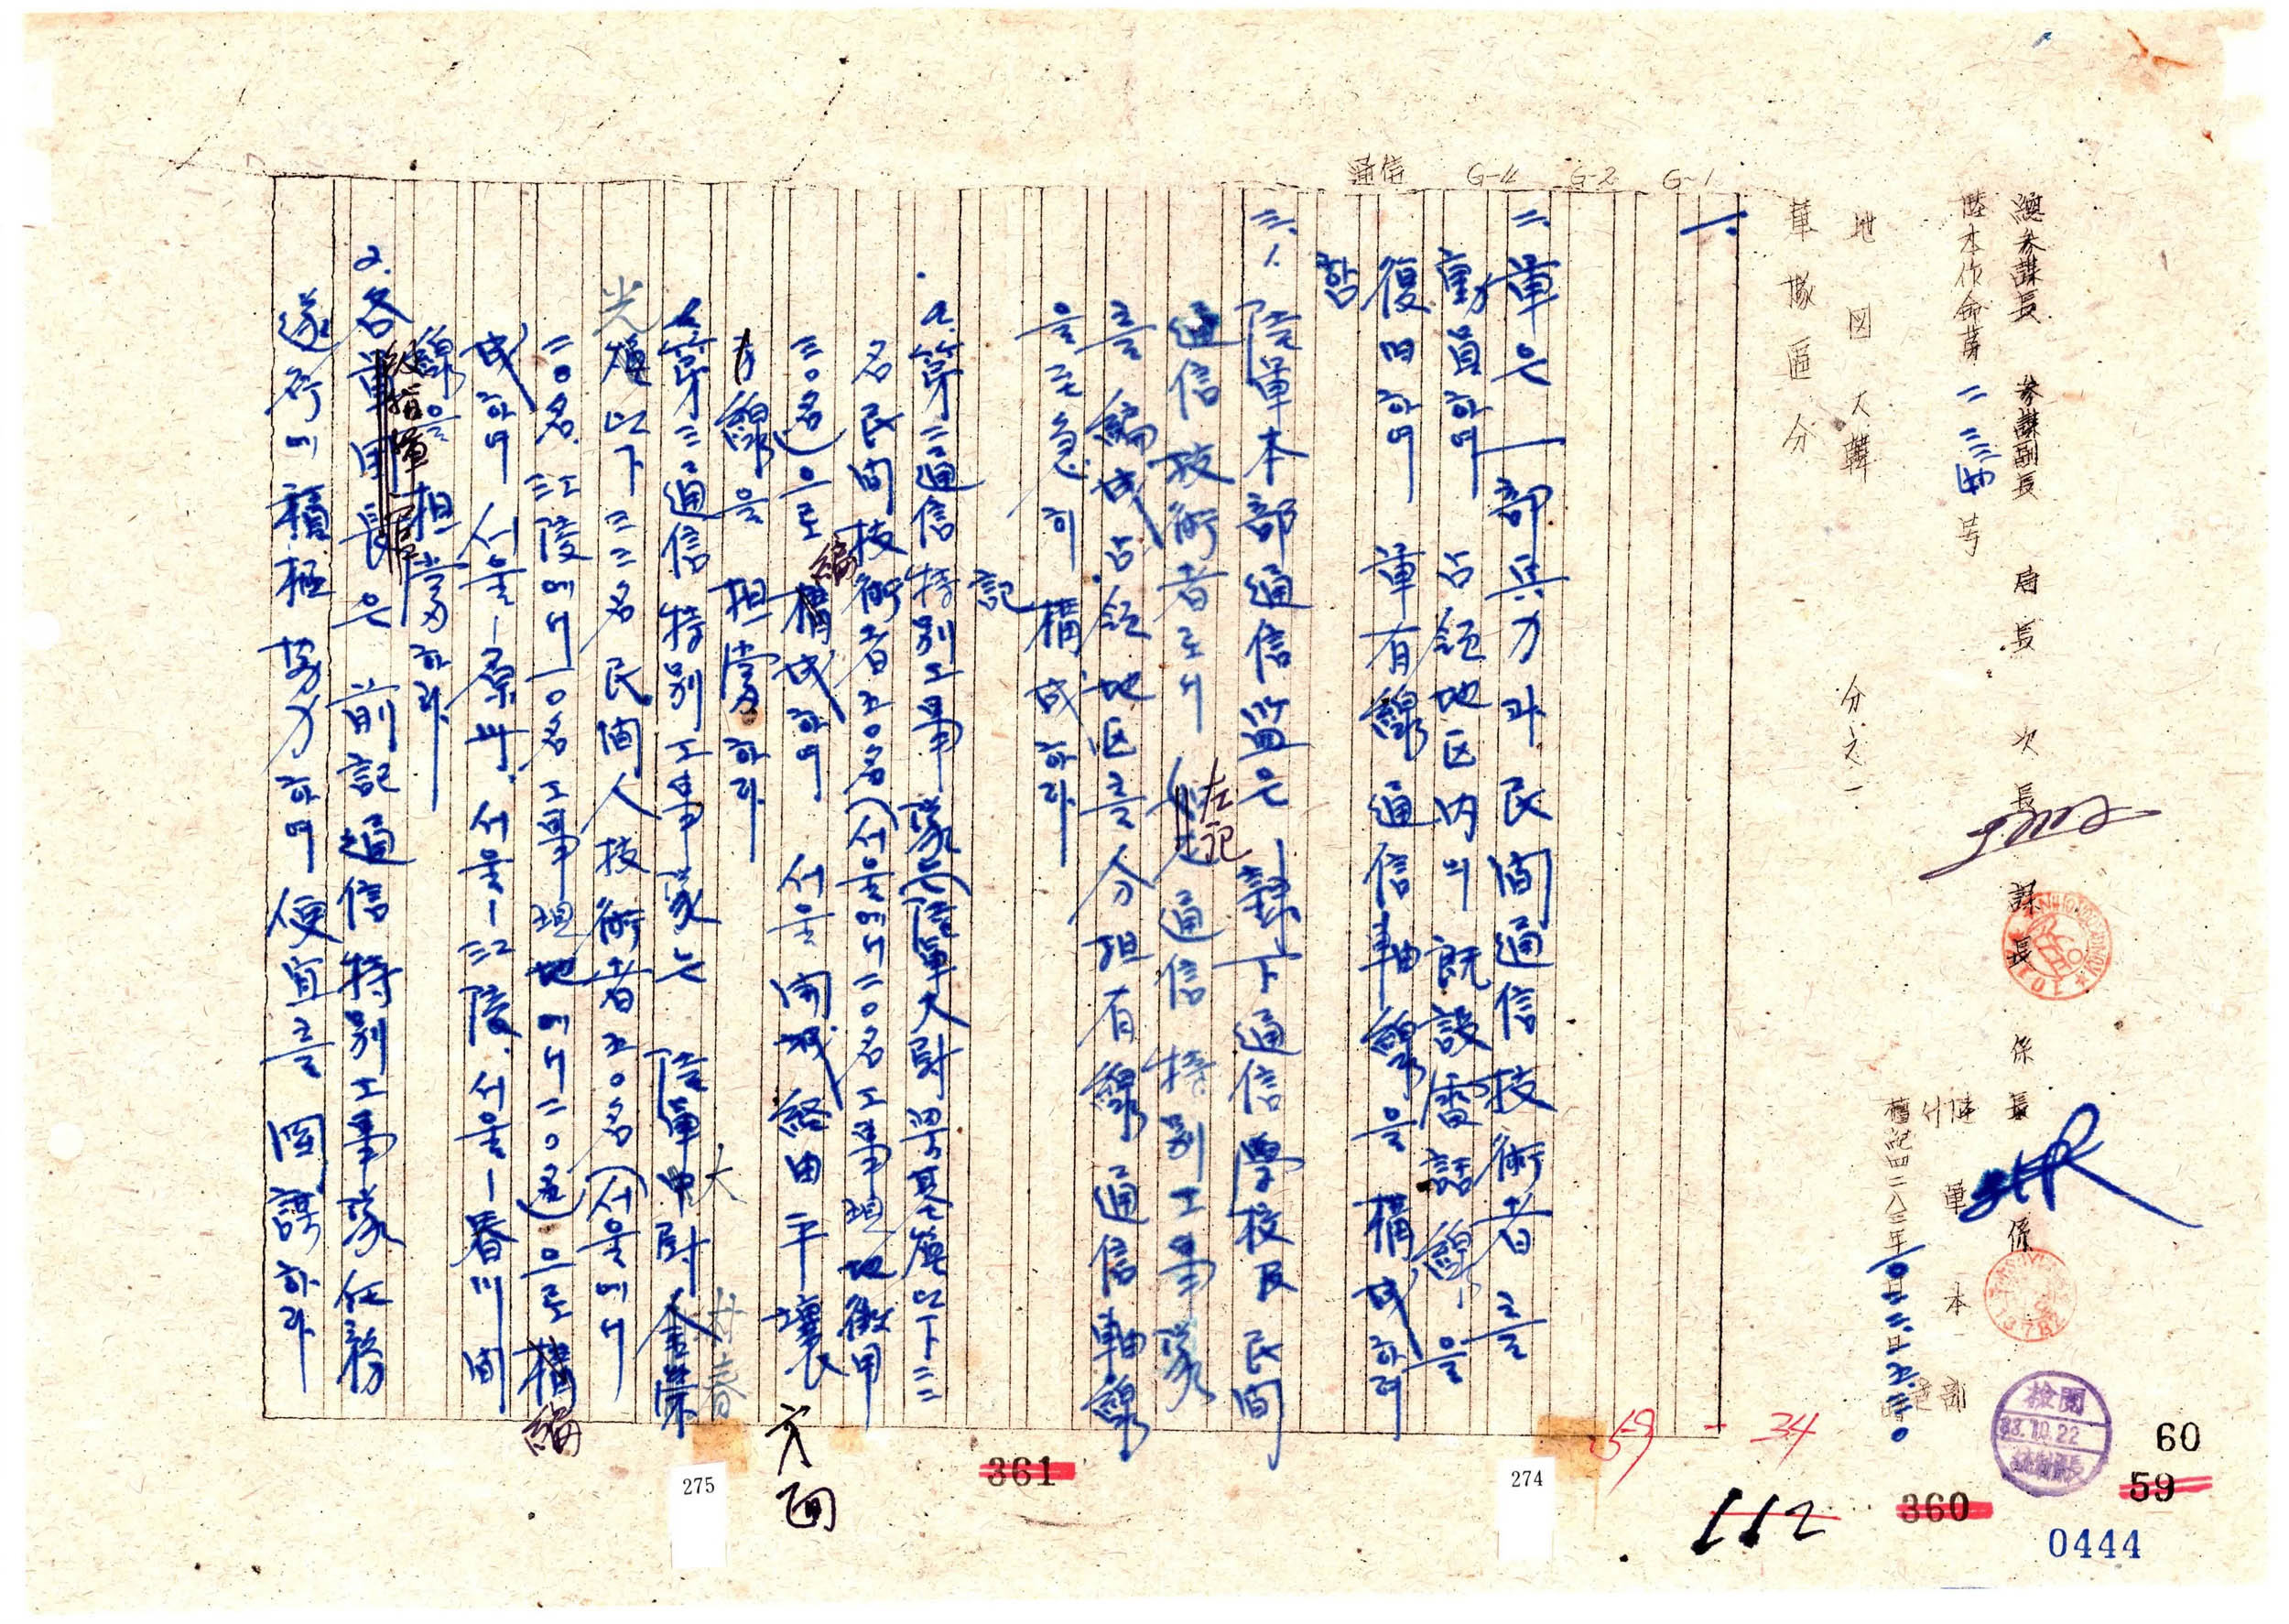 總參謀長 參謀副長 局長 次長 課長 係長 係
陸本作命第二三四号
陸軍本部
서울
檀紀四二八三年一０月二二日一五三０
地図 大韓 分之一
軍隊區分
G-1 G-2 G-4 通信
一.
二. 軍은 一部兵力과 民間通信技術者를
動員하여 占領地区内의 既設電話線을
復旧하여 軍有線通信軸線을 構成하려
함
三. 1. 陸軍本部通信監은 隷下通信學校及民間
通信技術者로서 左記 通信特別工事隊
를 編成 占領地区를 分担 有線通信軸線
을 至急히 構成하라
記
第二通信特別工事隊는(陸軍大尉 以下三
名民間技術者五0名(서울에서三0名工事現地徵用
三0名)으로 編成하여 서울 開城 経由 平壤 方面
有線을 担當하라
第三通信特別工事隊는 陸軍大尉
以下三三名 民間人技術者五0名(서울에서
二0名 江陵에서一0名工事現地에서二0名)으로 編
成하여 서울-原州. 서울-江陵. 서울-春川間
線을 担當하라
2. 各級指揮官은 前記通信特別工事隊任務
遂行에 積極努力하여 便宜를 図謀하라
檢閱
83.10.22
69 - 34
112
274
275
360
361
59
60
0444